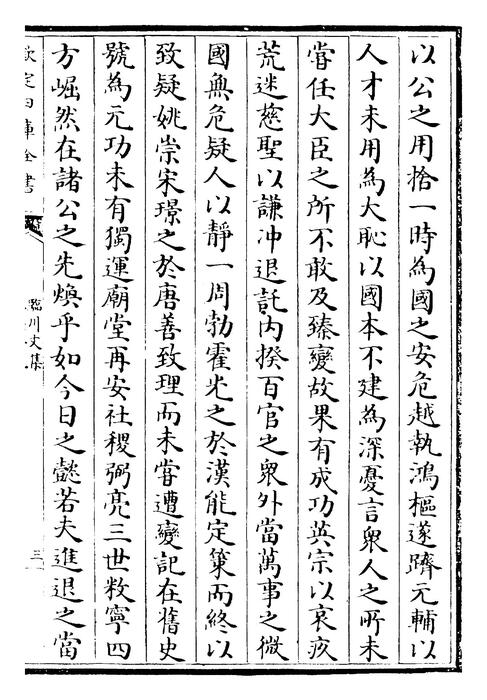 以公之用捨一時為國之安危越執鴻樞遂躋元輔以
人才未用為大恥以國本不建為深憂言衆人之所未
嘗任大臣之所不敢及臻變故果有成功英宗以哀疚
荒迷慈聖以謙冲退託内揆百官之衆外當萬事之微
國無危疑人以靜一周勃霍光之於漢能定策而終以
致疑姚崇宋璟之於唐善致理而未嘗遭變記在舊史
號為元功未有獨運廟堂再安社稷弼亮三世敉寧四
方崛然在諸公之先煥乎如今日之懿若夫進退之當
欽定四庫全書
臨川文集
三